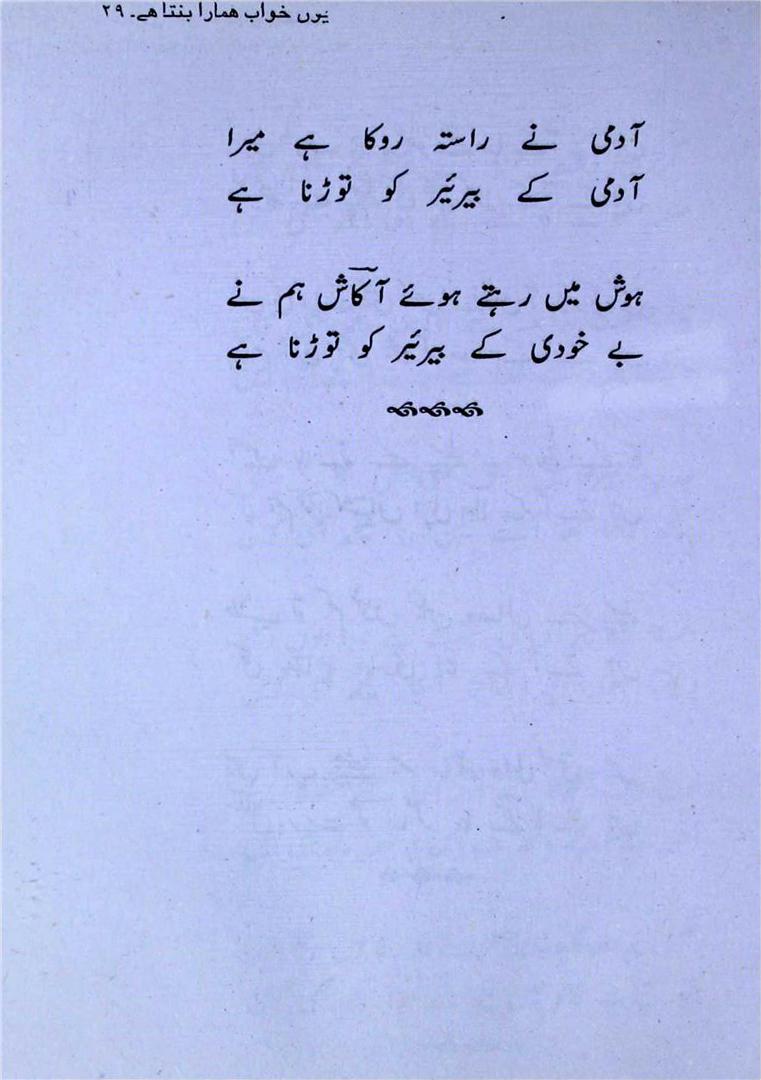 یوں خواب ھمارا بنتا ھے۔ ۲۹
آدمی نے راستہ روکا ہے میرا
آدمی کے بیرئیر کو توڑنا ہے
ہوش میں رہتے ہوئے آکاش ہم نے
بے خودی کے بیرئیر کو توڑنا ہے